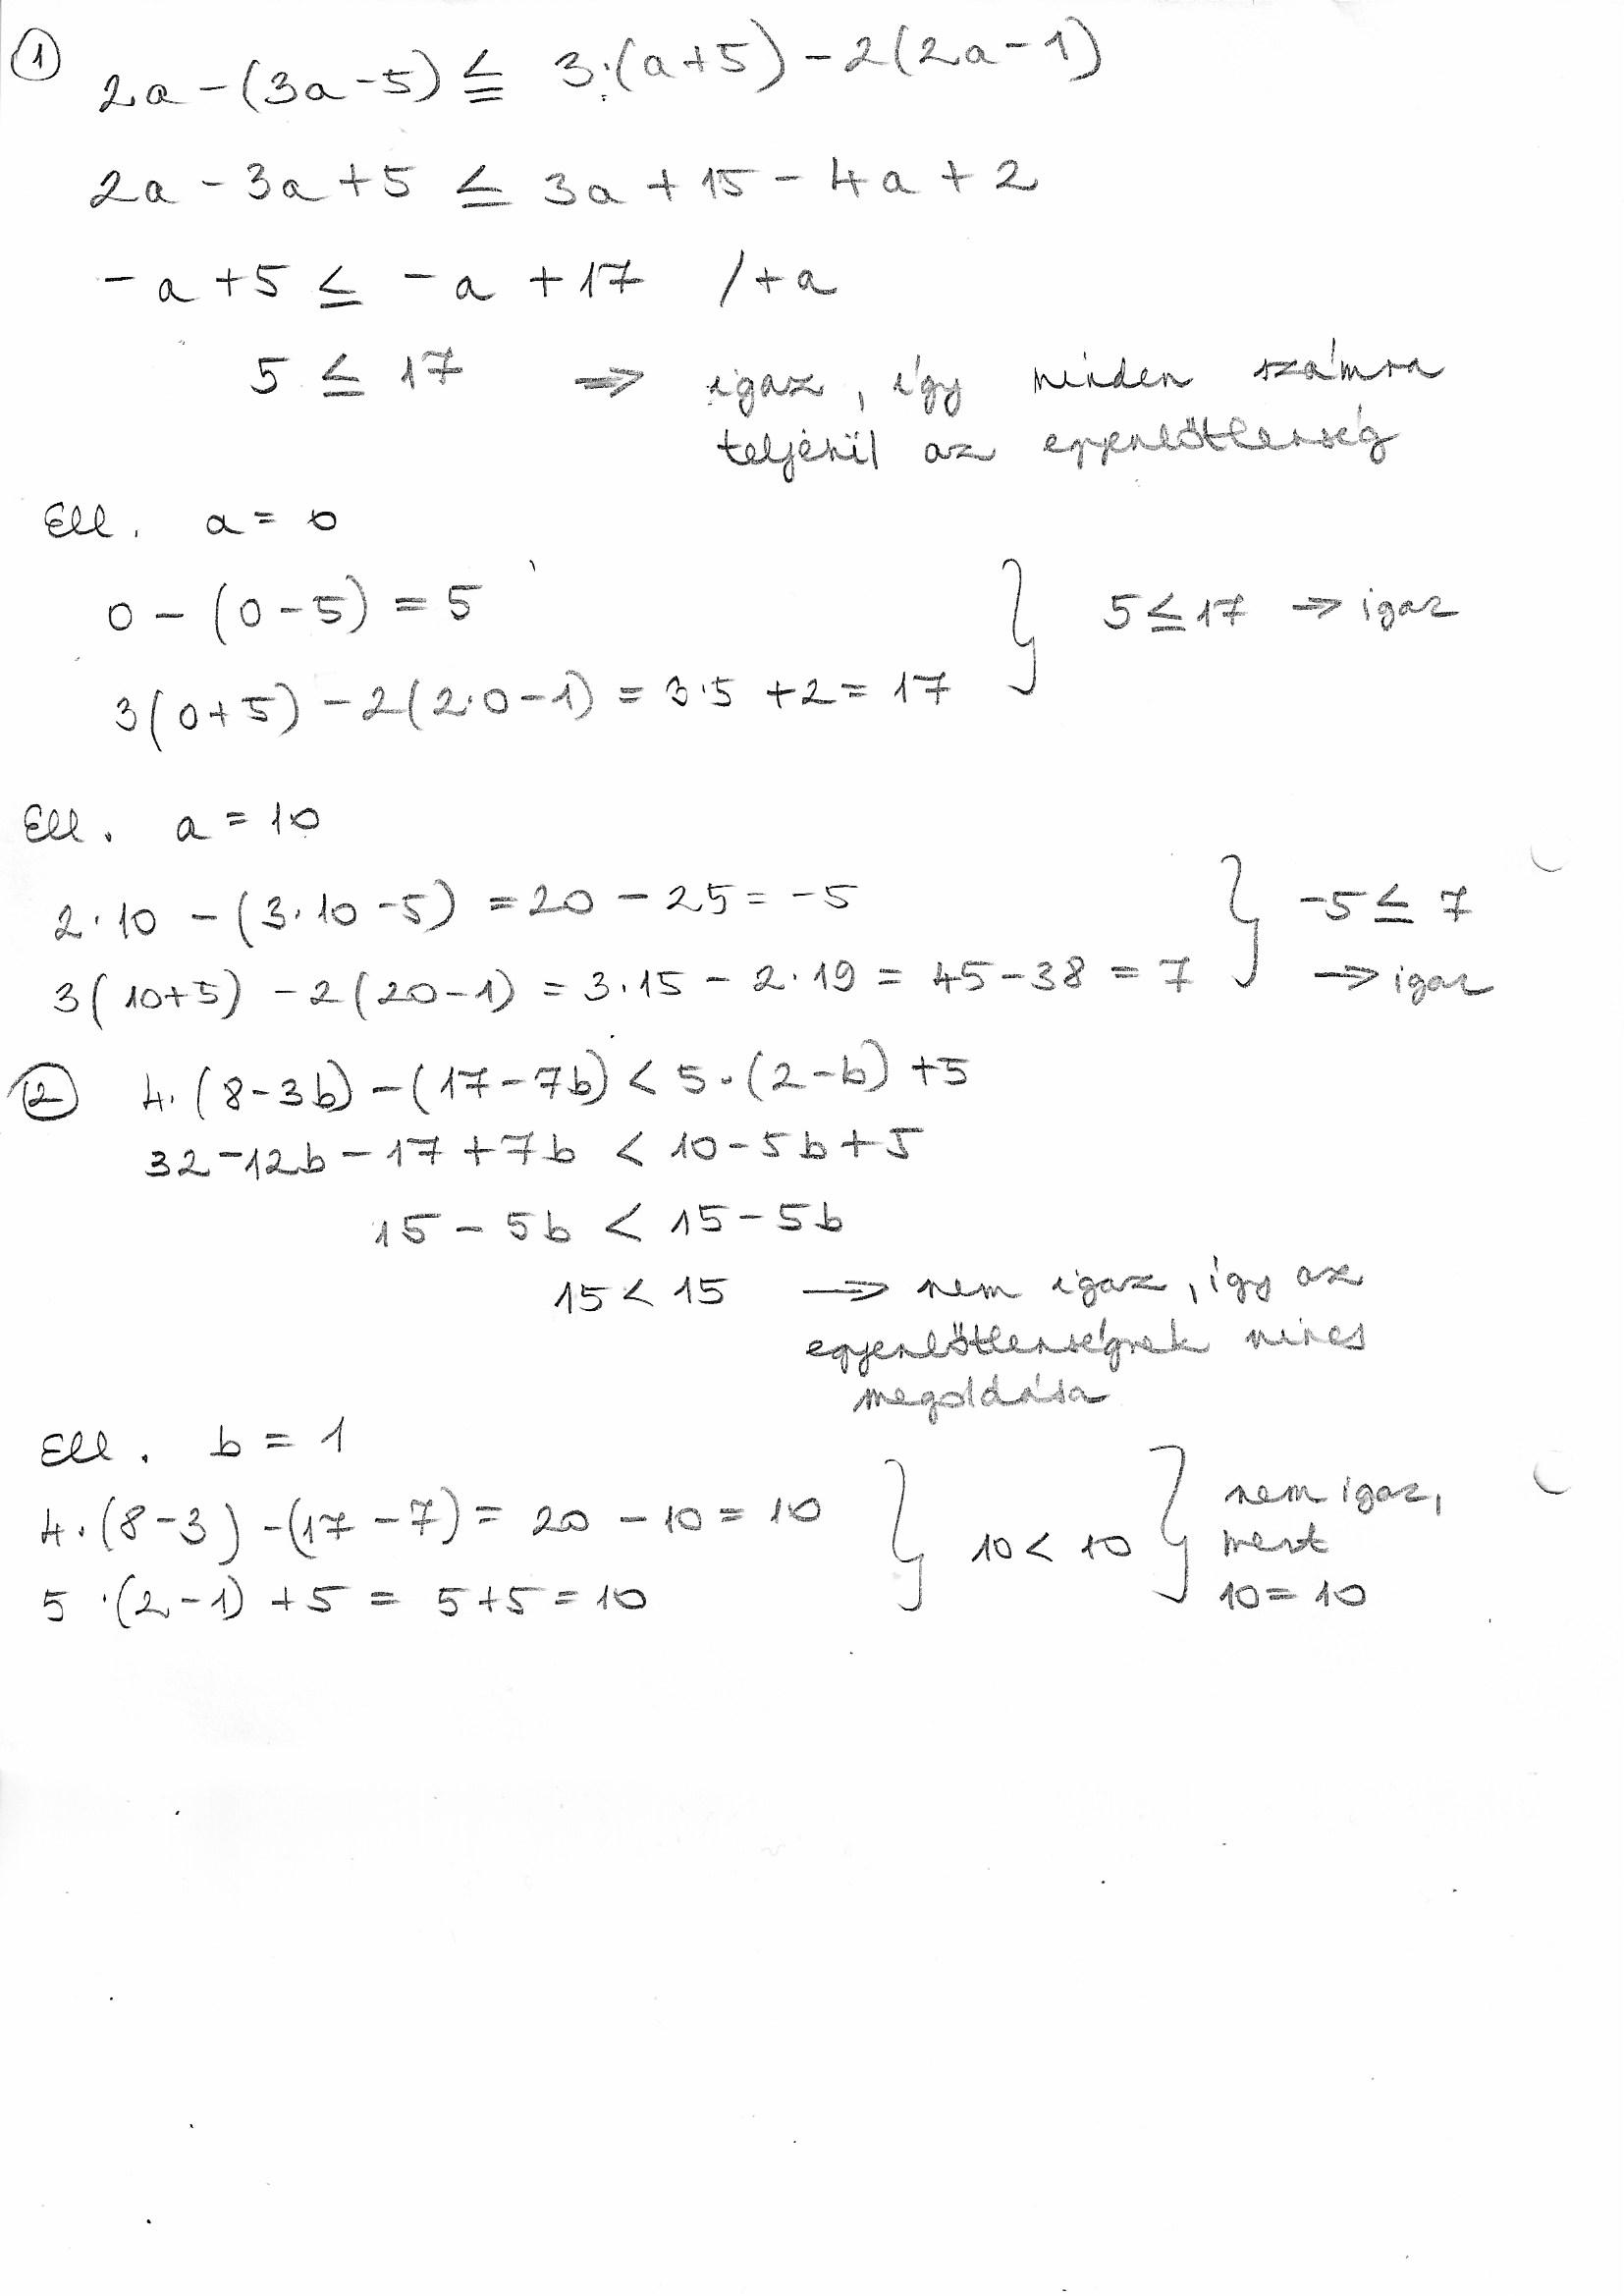 ① 2a-(3a-5) ≦ 3·(a+5)-2(2a-1)
2a-3a+5 ≤ 3a+15-4a+2
-a+5 ≤ -a+17 /+a
5 ≤ 17 => igaz, így minden számra
teljesül az egyenlőtlenség
Ell. a=0
0-(0-5)=5
5≤17 → igaz
3(0+5)-2(2·0-1)=3·5+2=17
Ell. a=10
2·10-(3·10-5)=20-25=-5
-5≤7
3(10+5)-2(20-1)=3·15-2·19=45-38=7
→ igaz
② 4·(8-3b)-(17-7b)<5·(2-b)+5
32-12b-17+7b<10-5b+5
15-5b<15-5b
15<15 → nem igaz, így az
egyenlőtlenségnek nincs
megoldása
Ell. b=1
4·(8-3)-(17-7)=20-10=10
10<10
nem igaz,
mert
10=10
5·(2-1)+5=5+5=10